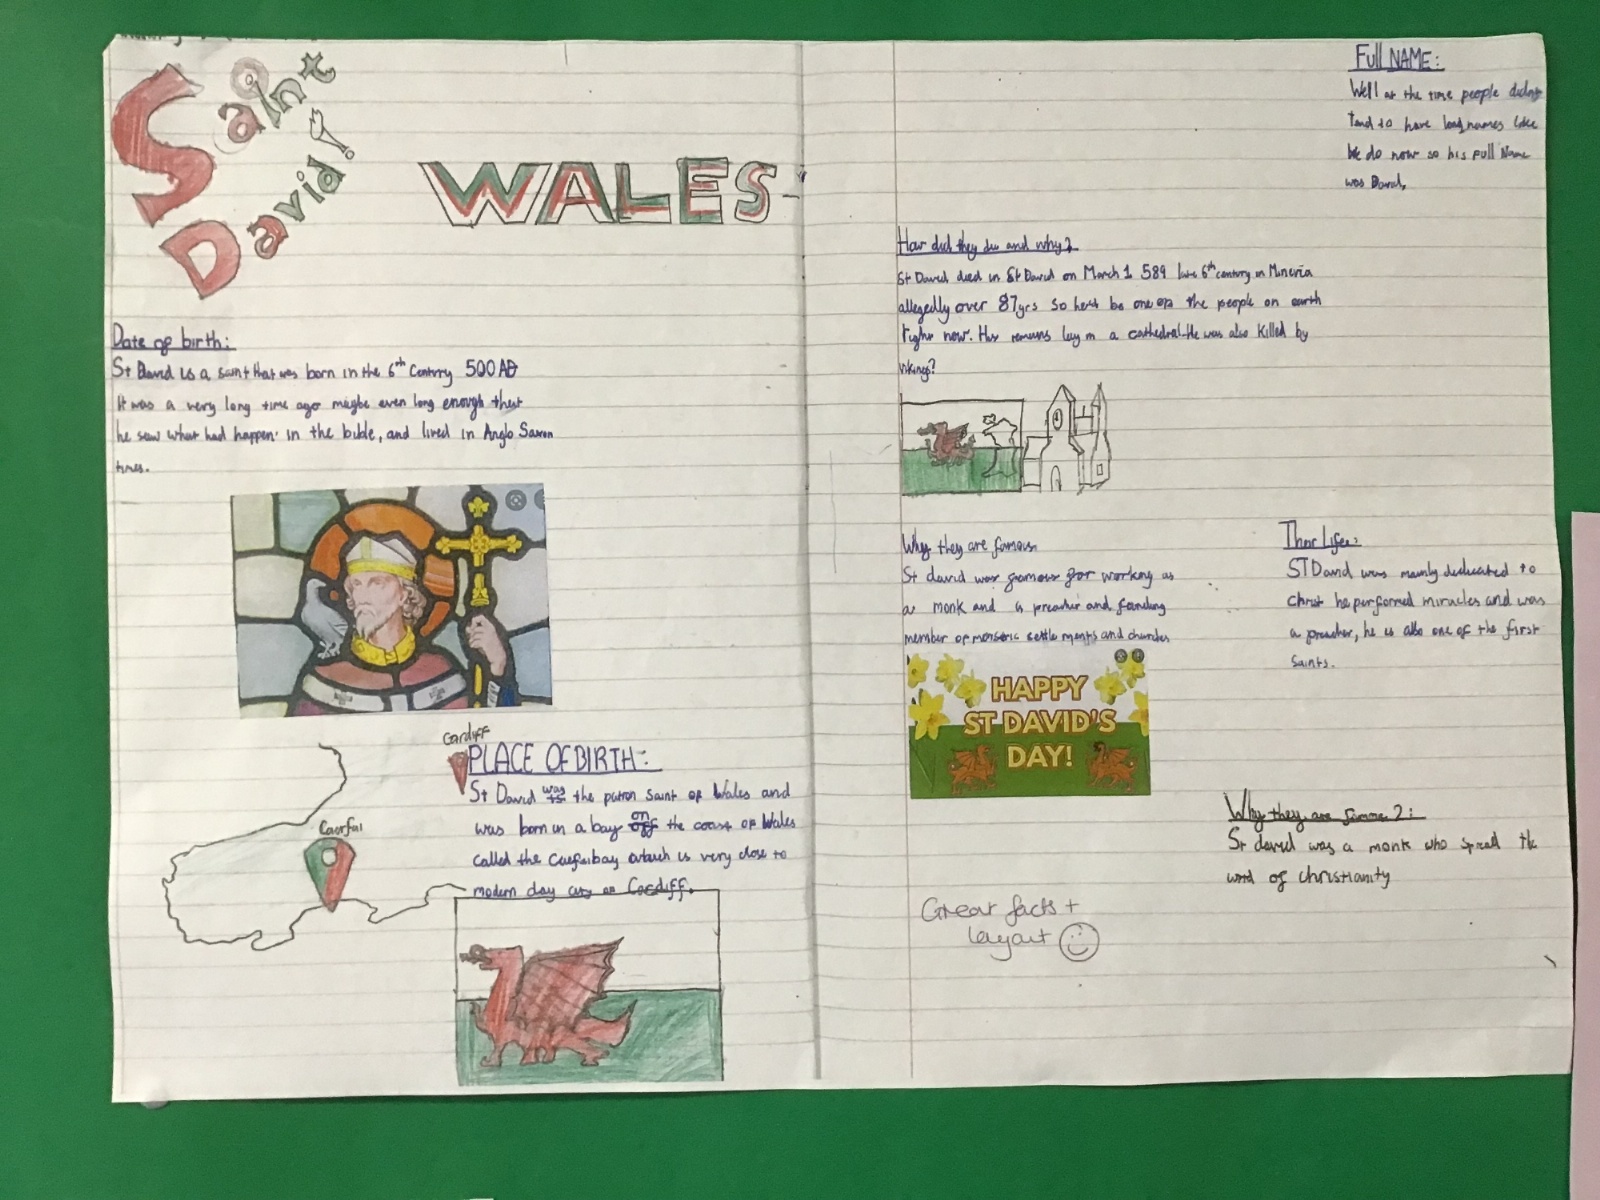 Saint
David!
WALES
Date of birth:
St David is a saint that was born in the 6th Century 500 AD
It was a very long time ago maybe even long enough that
he saw what had happen in the bible, and lived in Anglo Saxon
times.
Cardiff
PLACE OF BIRTH:
St David was the patron saint of Wales and
was born in a bay on the coast of Wales
called the which is very close to
modern day city of Cardiff.
Caerfai
Full NAME:
Well at the time people didnt
tend to have long names like
We do now so his Full Name
was David,
How did they die and why?
St David died in St David on March 1 589 late 6th century in
allegedly over 87yrs so be one of the people on earth
right now. His remains lay in a cathedral He was also killed by
vikings?
Why they are famous
St david was famous for working as
a monk and a preacher and founding
member of settlements and churches
HAPPY
ST DAVID'S
DAY!
Their Life:
ST David was mainly dedicated to
christ he performed miracles and was
a preacher, he is also one of the first
Saints.
Why they are famous 2:
St david was a monk who spread the
word of christianity
Great facts +
layout